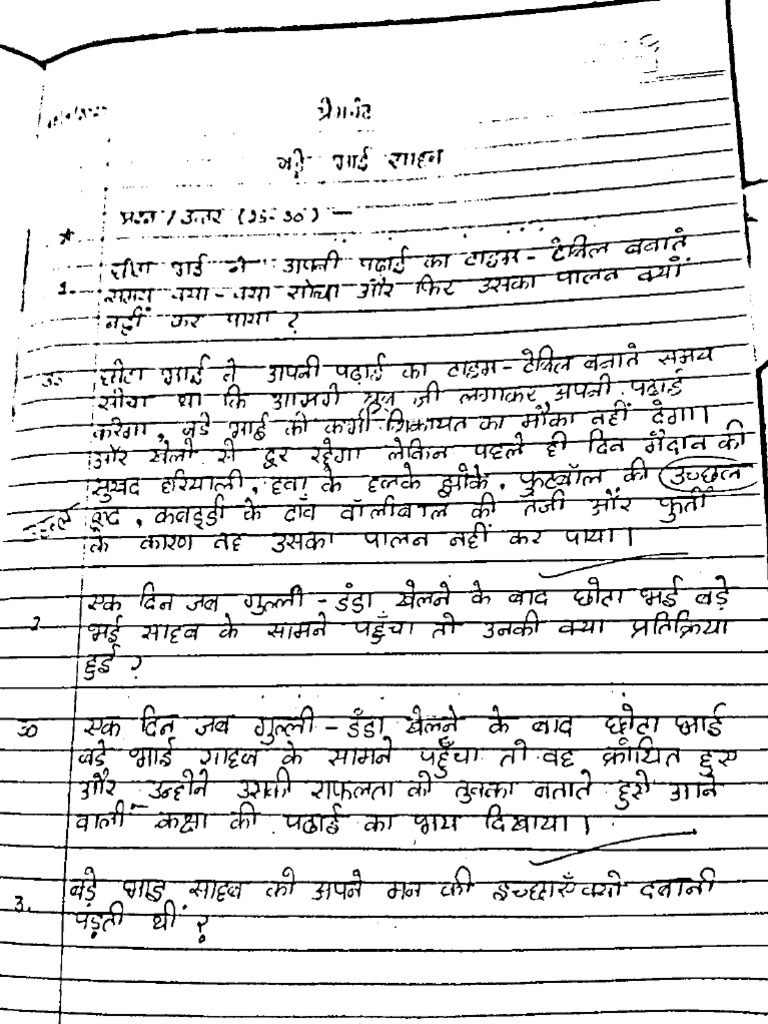 प्रेमचंद
बड़े भाई साहब
प्रश्न / उत्तर (25-30) -
1. छोटा भाई ने अपनी पढ़ाई का टाइम-टेबिल बनाते
समय क्या-क्या सोचा और फिर उसका पालन क्यों
नहीं कर पाया ?
उ० छोटा भाई ने अपनी पढ़ाई का टाइम-टेबिल बनाते समय
सोचा था कि आगसे खूब जी लगाकर अपनी पढ़ाई
करेगा, बड़े भाई को कभी शिकायत का मौका नहीं देगा।
और खेलों से दूर रहेगा लेकिन पहले ही दिन मैदान की
सुखद हरियाली, हवा के हलके झोके, फुटबॉल की उच्छल
कूद, कबड्डी के दाँव वॉलीबाल की तेजी और फुर्ती
के कारण वह उसका पालन नहीं कर पाया।
2 एक दिन जब गुल्ली-डंडा खेलने के बाद छोटा भई बड़े
भई साहब के सामने पहुँचा तो उनकी क्या प्रतिक्रिया
हुई ?
उ० एक दिन जब गुल्ली-डंडा खेलने के बाद छोटा भाई
बड़े भाई साहब के सामने पहुँचा तो वह क्रोधित हुए
और उन्होने उसकी सफलता को तुक्का बताते हुसे आने
वाली कक्षा की पढाई का भय दिखाया।
3. बड़े भाइ साहब को अपने मन की इच्छाएँ क्यो दबानी
पड़ती थीं ?